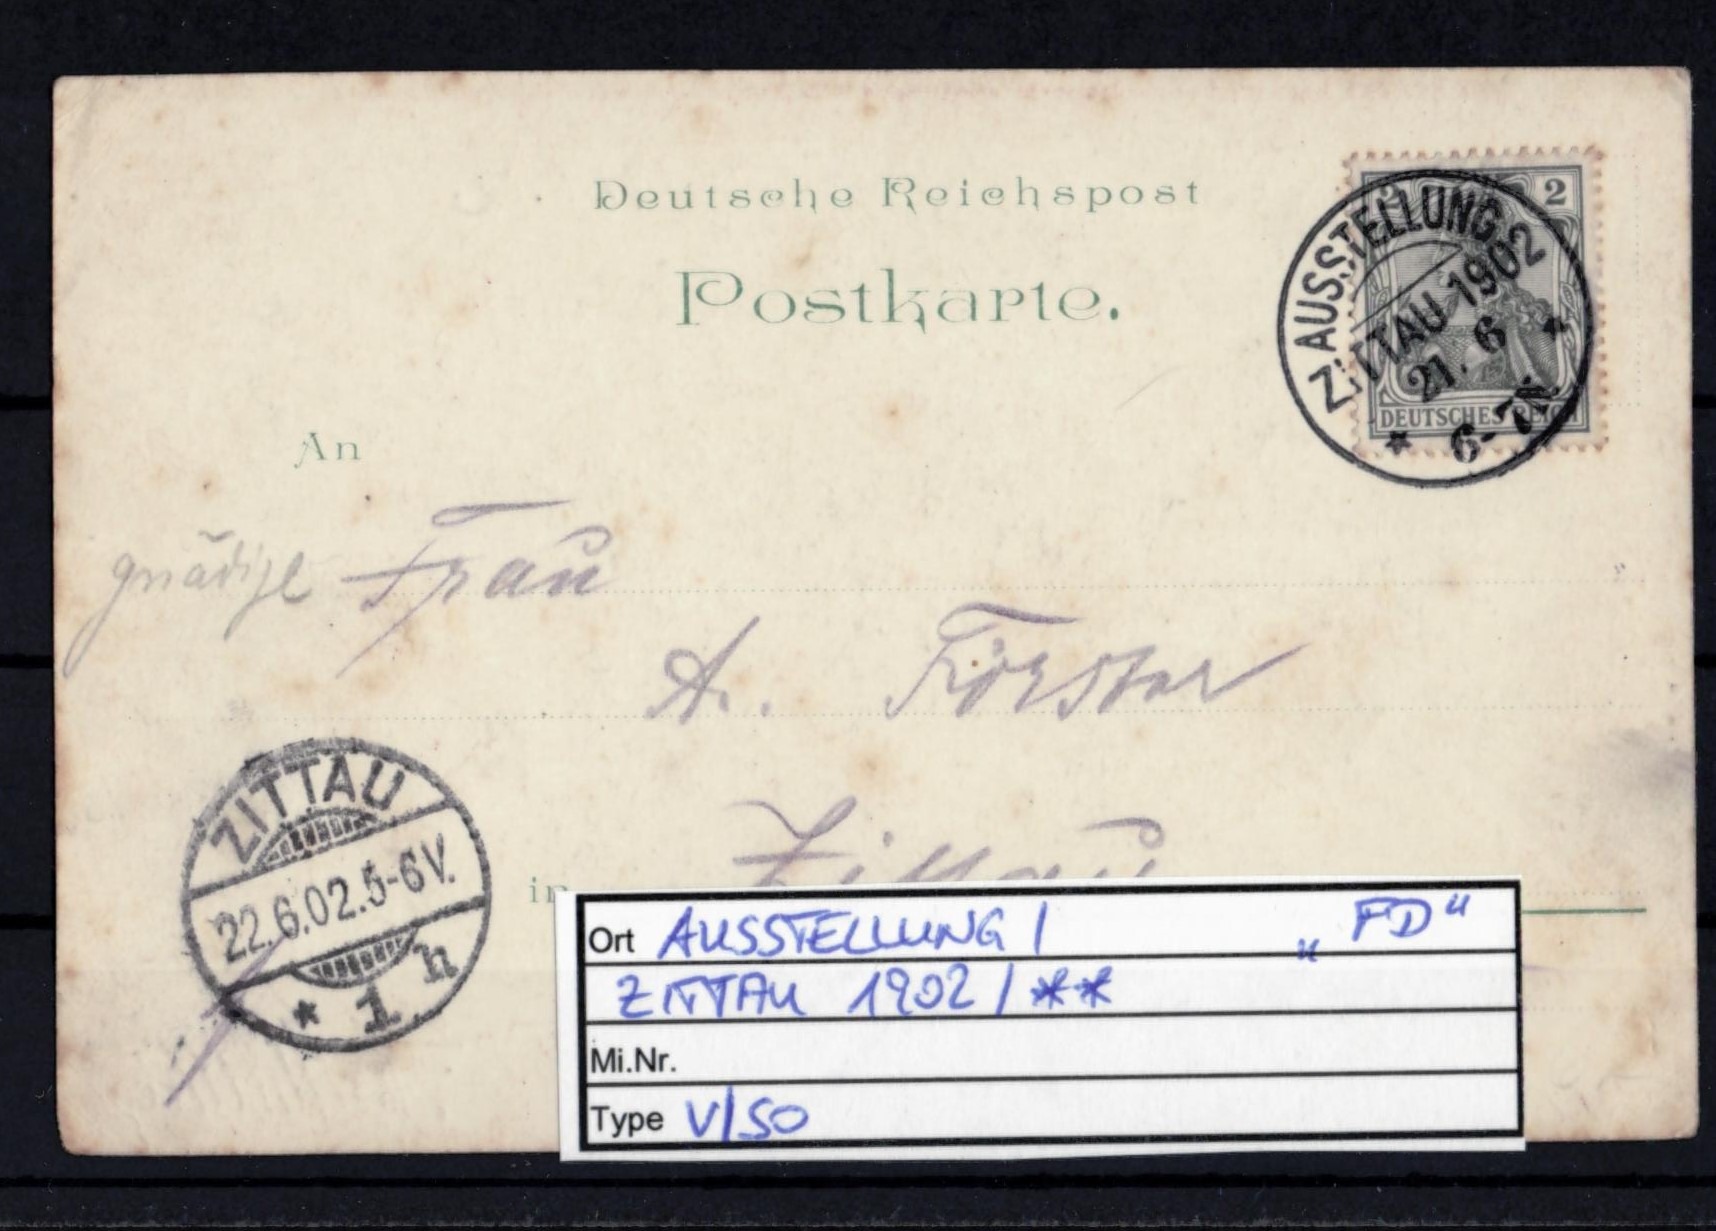 Deutsche Reichspost
Postkarte.
2 2
AUSSTELLUNG
ZITTAU 1902
21. 6
* 6-7N. *
DEUTSCHES REICH
An
gnädige Frau
A. Förster
ZITTAU
22.6.02.5-6V.
* 1 h
in Zittau
Ort AUSSTELLUNG / "FD"
ZITTAU 1902 / **
Mi.Nr.
Type V/SO